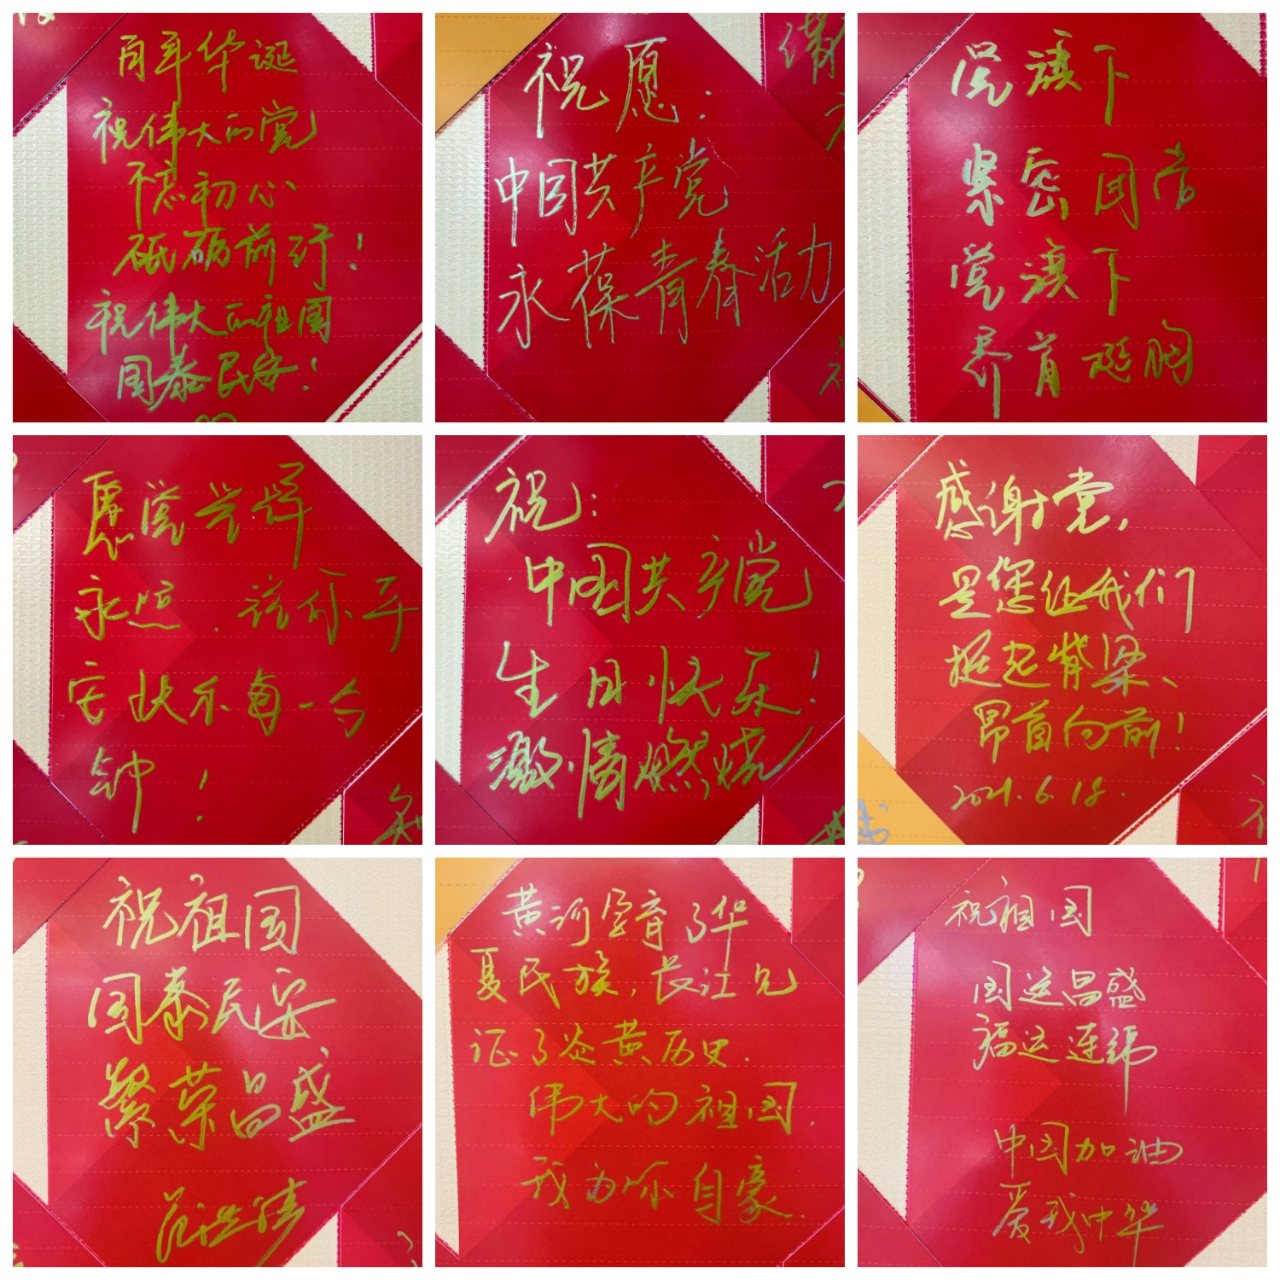 百年华诞
祝伟大的党
不忘初心
砥砺前行！
祝伟大的祖国
国泰民安！
祝愿：
中国共产党
永葆青春活力
党旗下
紧密团结
党旗下
昂首挺胸
愿党光辉
永远
一分
钟！
祝：
中国共产党
生日快乐！
激情燃烧
感谢党，
是您让我们
挺起脊梁、
昂首向前！
2021.6.18.
祝祖国
国泰民安
繁荣昌盛
黄河孕育了华
夏民族，长江见
证了炎黄历史.
伟大的祖国.
我为你自豪.
祝祖国
国运昌盛
福运连绵
中国加油
爱我中华